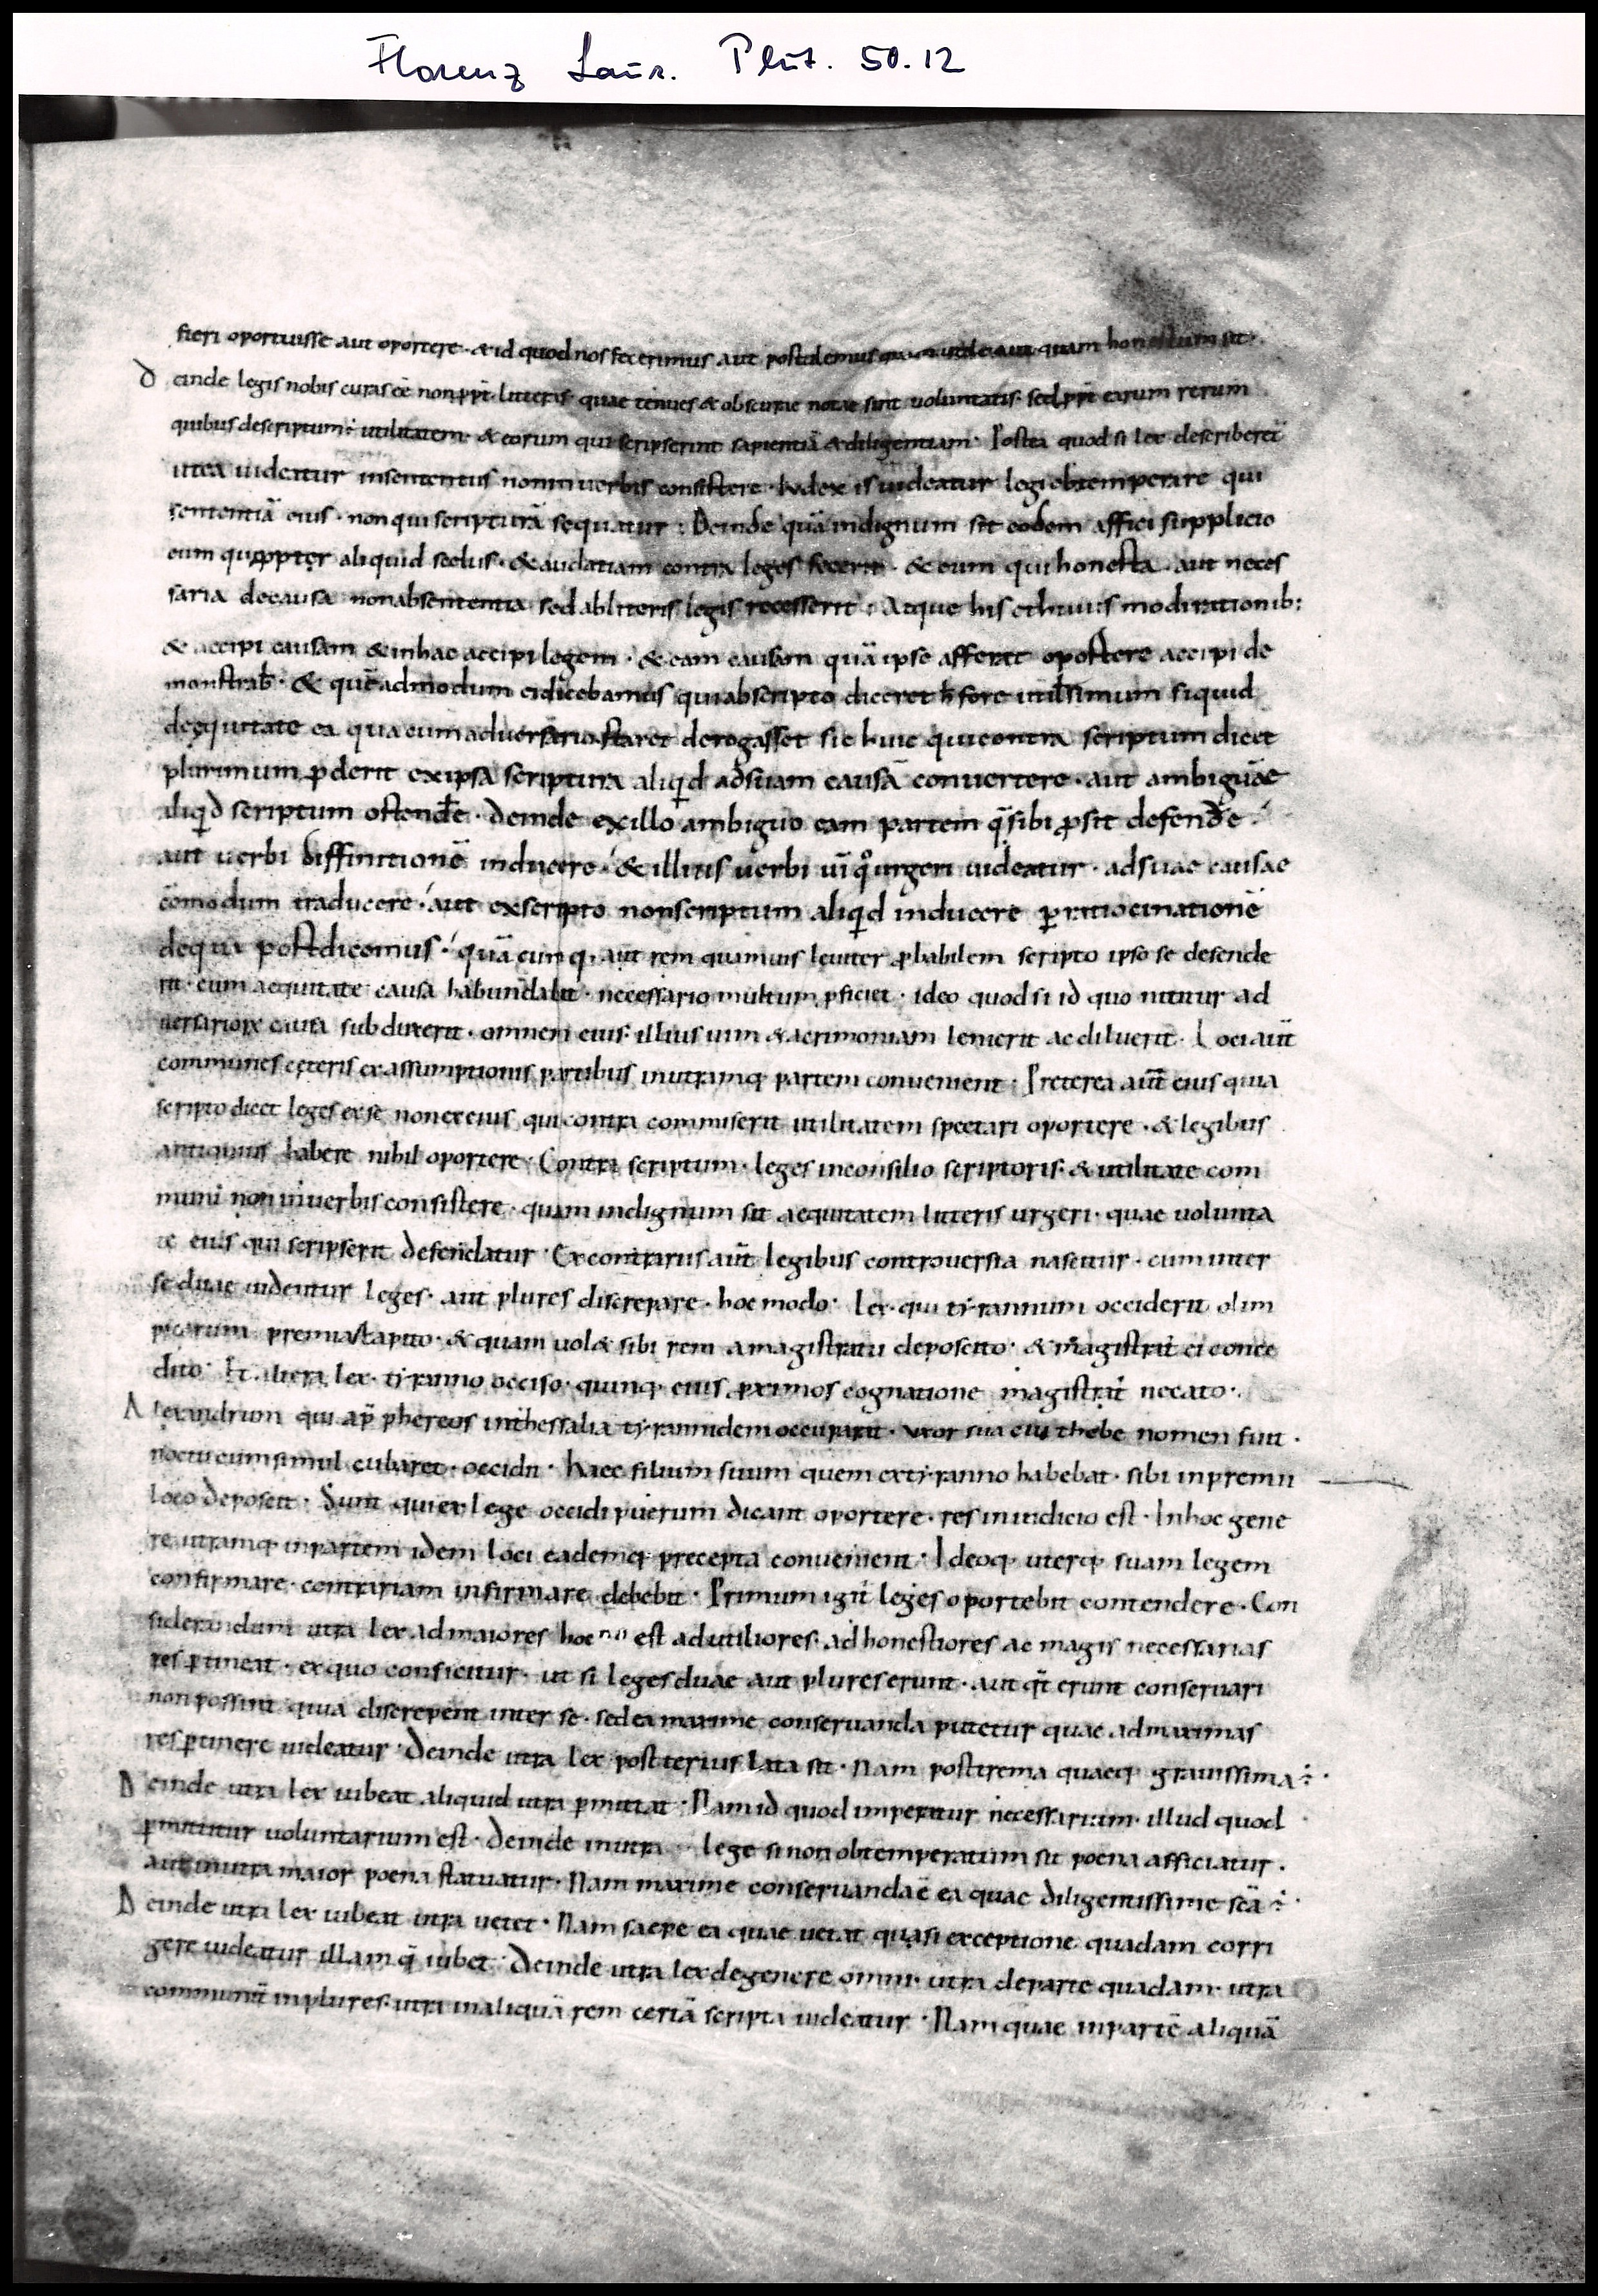 Florenz Laur. Plut. 50.12
fieri oportuisse aut oportere · & id quod nos fecerimus aut postulemus quam utile aut quam honestum sit ·
Deinde legis nobis caras eē non ppt litteris quae tenues & obscurae notae sint voluntatis · sed ppt earum rerum
quibus descriptum ÷ utilitatem · & eorum qui scripserint sapientiā & diligentiam · Postea quod si lex describeret̄
ut ea uideatur insententiis non in uerbis consistere · Iudex is uideatur legi obtemperare qui
sententiā eius · non qui scripturā sequatur : Deinde quā indignum sit eodem affici supplicio
eum qui ppter aliquid scelus · & audatiam contra leges fecerit · & eum qui honesta · aut neces
saria de causa non ab sententia sed ab litteris legis recesserit : Atque his et huius modi rationib:
& accipi causam & in hac accipi legem · & eam causam quā ipse afferet oportere accipi de
monstrab̄ · & quēadmodum ei dicebamus qui ab scripto diceret h̄ fore utilissimum siquid
de equitate ea qua cum aduersario staret derogasset sic huic qui contra scriptum dicet
plurimum pderit ex ipsa scriptura aliqd ad suam causā conuertere · aut ambiguae
aliqd scriptum ostendēe · deinde ex illo ambiguo eam partem q̄ sibi psit defendēe ·
aut uerbi diffinitionē inducere · & illius uerbi uī qͦ urgeri uideatur · ad suae causae
cōmodum traducere · aut ex scripto non scriptum aliqd inducere p ratiocinationē
de qua post dicemus · quā cumq, aut rem quamuis leuiter phabilem scripto ipso se defende
rit · cum aequitate causa habundabit · necessario multum pficiet · ideo quod si id quo nititur ad
uersariorx causa subduxerit · omnem eius illius uim & acrimoniam lenierit ac diluerit · Loci aut̄
communes ceteris ex assumptionis partibus in utramq partem conuenient · Preterea aut̄ eius qui a
scripto dicet leges ex se non ex eius qui contra commiserit utilitatem spectari oportere · & legibus
antiquius habere nihil oportere · Contra scriptum · leges in consilio scriptoris & utilitate com
muni non in uerbis consistere · quam indignum sit aequitatem litteris urgeri · quae volunta
te eius qui scripserit defendatur · Ex contrariis aut̄ legibus controuersia nascitur · cum inter
se duae uidentur leges · aut plures discrepare · hoc modo · lex · qui tyrannum occiderit olim
picarum premia capito · & quam uol& sibi rem a magistratu deposcito · & magistrat̄ ei conce
dito · Et altera lex · tyranno occiso · quinq eius pximos cognatione magistrat̄ necato ·
Alexandrum qui ap̄ phereos in thessalia tyrannidem occuparat · uxor sua cui thebe nomen fuit ·
noctu cum simul cubaret · occidit · haec filium suum quem ex tyranno habebat · sibi in premii
loco deposcit · Sunt qui ex lege occidi puerum dicant oportere · res in iudicio est · In hoc gene
re utramq in partem idem loci eademq precepta conuenient · Ideoq uterq suam legem
confirmare · contrariam infirmare debebit · Primum igit̄ leges oportebit contendere · Con
siderandum utra lex ad maiores hoc est ad utiliores · ad honestiores ac magis necessarias
res ptineat · ex quo conficitur · ut si leges duae aut plures erunt · aut qt erunt conseruari
non possint quia discrepent inter se · sed ea maxime conseruanda putetur quae ad maximas
res ptinere uideatur · Deinde utra lex posterius lata sit · Nam postrema quaeq grauissima ÷ ·
Deinde utra lex iubeat aliquid utra pmittat · Nam id quod imperatur necessarium · illud quod
pmittitur uoluntarium est · Deinde in utra lege si non obtemperatum sit poena afficiatur ·
aut in utra maior poena statuatur · Nam maxime conseruanda ē ea quae diligentissime scā ÷ ·
Deinde utra lex iubeat utra uetet · Nam saepe ea quae uetat quasi exceptione quadam corri
gere uideatur illam q̄ iubet · Deinde utra lex de genere omni · utra de parte quadam · utra
communit̄ in plures · utra in aliquā rem certā scripta uideatur · Nam quae in partē aliquā